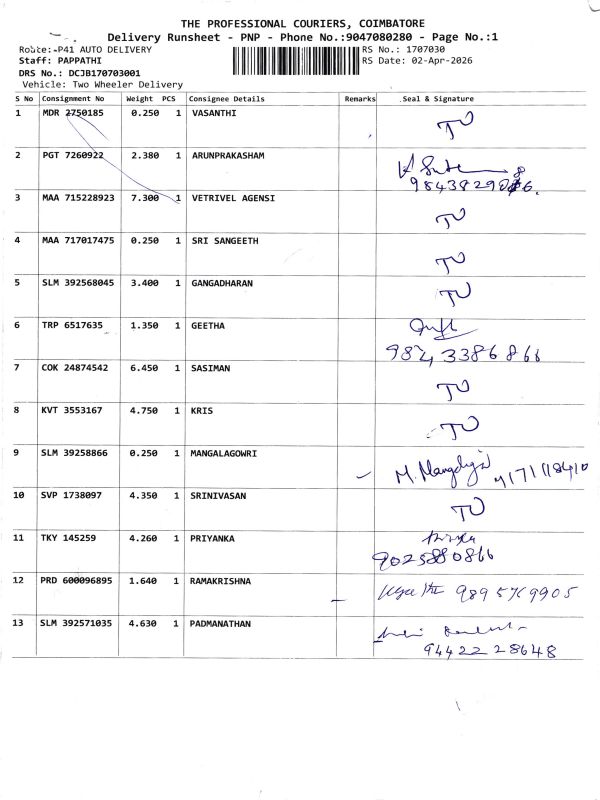 THE PROFESSIONAL COURIERS, COIMBATORE
Delivery Runsheet - PNP - Phone No.:9047080280 - Page No.:1
Route:-P41 AUTO DELIVERY RS No.: 1707030
Staff: PAPPATHI RS Date: 02-Apr-2026
DRS No.: DCJB170703001
Vehicle: Two Wheeler Delivery
S No Consignment No Weight PCS Consignee Details Remarks Seal & Signature
1 MDR 2750185 0.250 1 VASANTHI TU
2 PGT 7260922 2.380 1 ARUNPRAKASHAM
3 MAA 715228923 7.300 1 VETRIVEL AGENSI TU
4 MAA 717017475 0.250 1 SRI SANGEETH TU
5 SLM 392568045 3.400 1 GANGADHARAN TU
6 TRP 6517635 1.350 1 GEETHA
9843386866
7 COK 24874542 6.450 1 SASIMAN TU
8 KVT 3553167 4.750 1 KRIS TU
9 SLM 39258866 0.250 1 MANGALAGOWRI M.
10 SVP 1738097 4.350 1 SRINIVASAN TU
11 TKY 145259 4.260 1 PRIYANKA
9025880866
12 PRD 600096895 1.640 1 RAMAKRISHNA 9895769905
13 SLM 392571035 4.630 1 PADMANATHAN
94422 28648